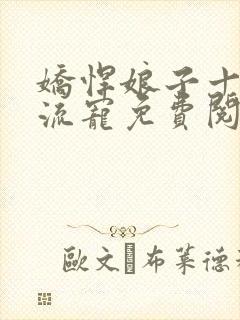 嬌悍娘子十
流寵免費閱
歐文·布萊德